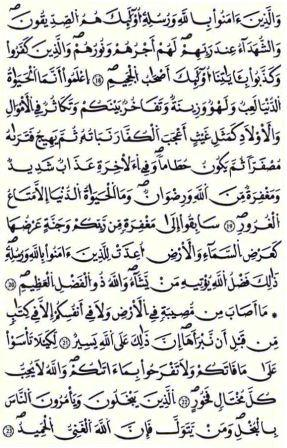 وَالَّذِينَ ءَامَنُوا بِاللَّهِ وَرُسُلِهِ أُوْلَٰئِكَ هُمُ الصِّدِّيقُونَ
وَالشُّهَدَاءُ عِندَ رَبِّهِمْ لَهُمْ أَجْرُهُمْ وَنُورُهُمْ وَالَّذِينَ كَفَرُوا
وَكَذَّبُوا بِـَٔايَٰتِنَا أُوْلَٰئِكَ أَصْحَٰبُ الْجَحِيمِ ١٨ اِعْلَمُوا أَنَّمَا الْحَيَوٰةُ
الدُّنْيَا لَعِبٌ وَلَهْوٌ وَزِينَةٌ وَتَفَاخُرٌ بَيْنَكُمْ وَتَكَاثُرٌ فِي الْأَمْوَالِ
وَالْأَوْلَادِ كَمَثَلِ غَيْثٍ أَعْجَبَ الْكُفَّارَ نَبَاتُهُ ثُمَّ يَهِيجُ فَتَرَىٰهُ
مُصْفَرًّا ثُمَّ يَكُونُ حُطَٰمًا وَفِي الْأَخِرَةِ عَذَابٌ شَدِيدٌ
وَمَغْفِرَةٌ مِّنَ اللَّهِ وَرِضْوَانٌ وَمَا الْحَيَوٰةُ الدُّنْيَا إِلَّا مَتَاعُ
الْغُرُورِ ١٩ سَابِقُوا إِلَىٰ مَغْفِرَةٍ مِّن رَّبِّكُمْ وَجَنَّةٍ عَرْضُهَا
كَعَرْضِ السَّمَاءِ وَالْأَرْضِ أُعِدَّتْ لِلَّذِينَ ءَامَنُوا بِاللَّهِ وَرُسُلِهِ
ذَٰلِكَ فَضْلُ اللَّهِ يُؤْتِيهِ مَنْ يَّشَاءُ وَاللَّهُ ذُو الْفَضْلِ الْعَظِيمِ ٢٠
* مَا أَصَابَ مِن مُّصِيبَةٍ فِي الْأَرْضِ وَلَا فِي أَنفُسِكُمْ إِلَّا فِي كِتَٰبٍ
مِّن قَبْلِ أَن نَّبْرَأَهَا إِنَّ ذَٰلِكَ عَلَى اللَّهِ يَسِيرٌ ٢١ لِّكَيْلَا تَأْسَوْا
عَلَىٰ مَا فَاتَكُمْ وَلَا تَفْرَحُوا بِمَا ءَاتَىٰكُمْ وَاللَّهُ لَا يُحِبُّ
كُلَّ مُخْتَالٍ فَخُورٍ ٢٢ الَّذِينَ يَبْخَلُونَ وَيَأْمُرُونَ النَّاسَ
بِالْبُخْلِ وَمَنْ يَّتَوَلَّ فَإِنَّ اللَّهَ الْغَنِيُّ الْحَمِيدُ ٢٣